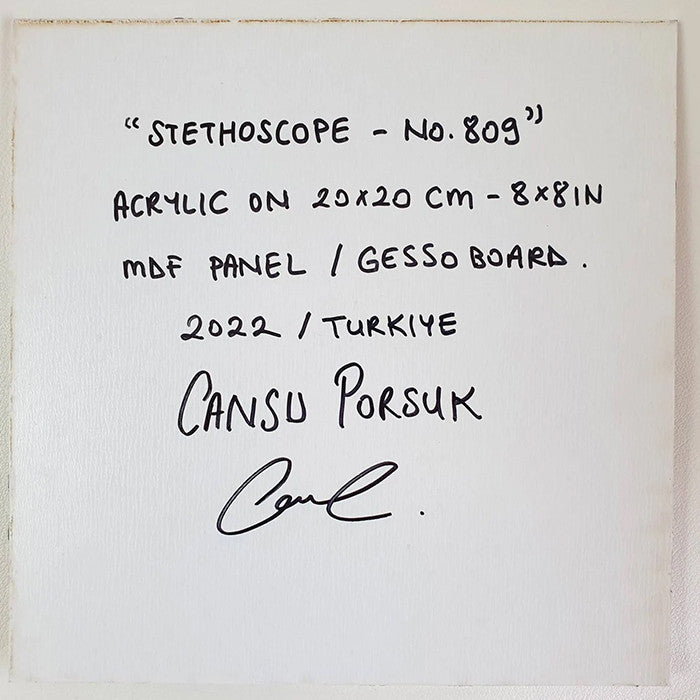 “STETHOSCOPE - NO. 809”
ACRYLIC ON 20x20 cm - 8x8IN
MDF PANEL / GESSO BOARD.
2022 / TURKIYE
CANSU PORSUK